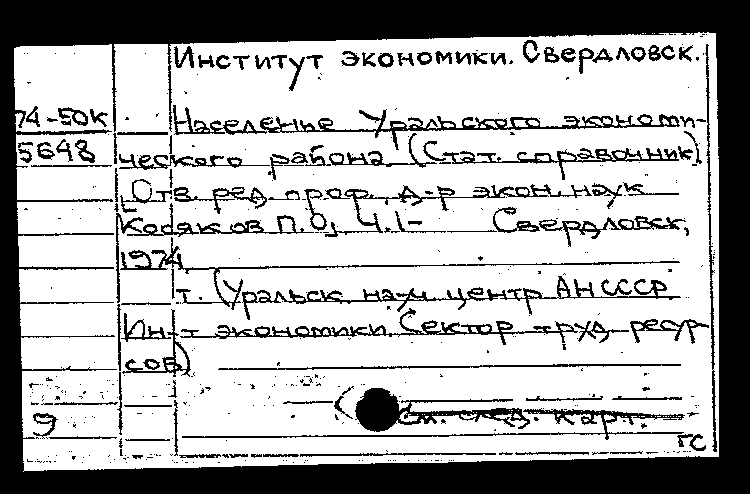 Институт экономики. Свердловск.
74-50к
Население Уральского экономи-
5648
ческого района (Стат. справочник)
[Отв. ред. проф., д-р экон. наук
Косяков П.О, Ч.1- Свердловск,
1974
т. (Уральск. науч. центр АН СССР
Ин-т экономики. Сектор труд. ресур
сов)
См. след. карт.
9
гс